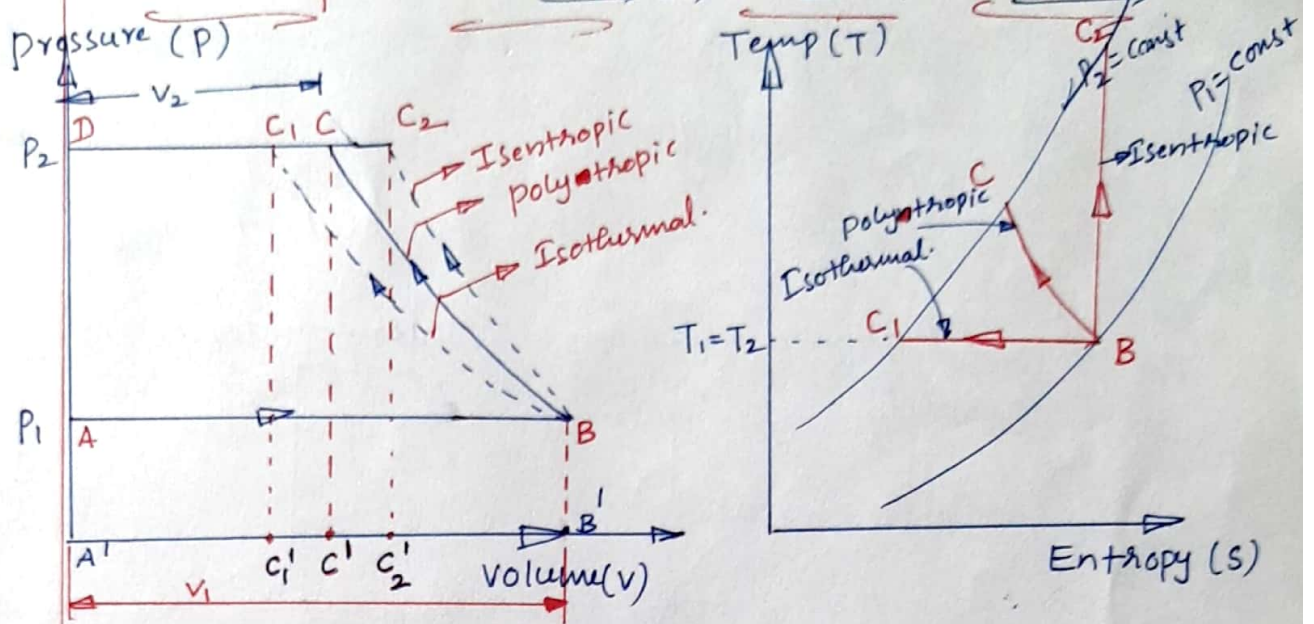 Pressure (P)
V2
D
C1 C C2
P2
Isentropic
polytropic
Isothermal.
P1
A
B
A'
C1' C' C2'
B'
Volume(V)
V1
Temp (T)
C2
P2=const
P1=const
Isentropic
C
polytropic
Isothermal.
C1
T1=T2
B
Entropy (S)